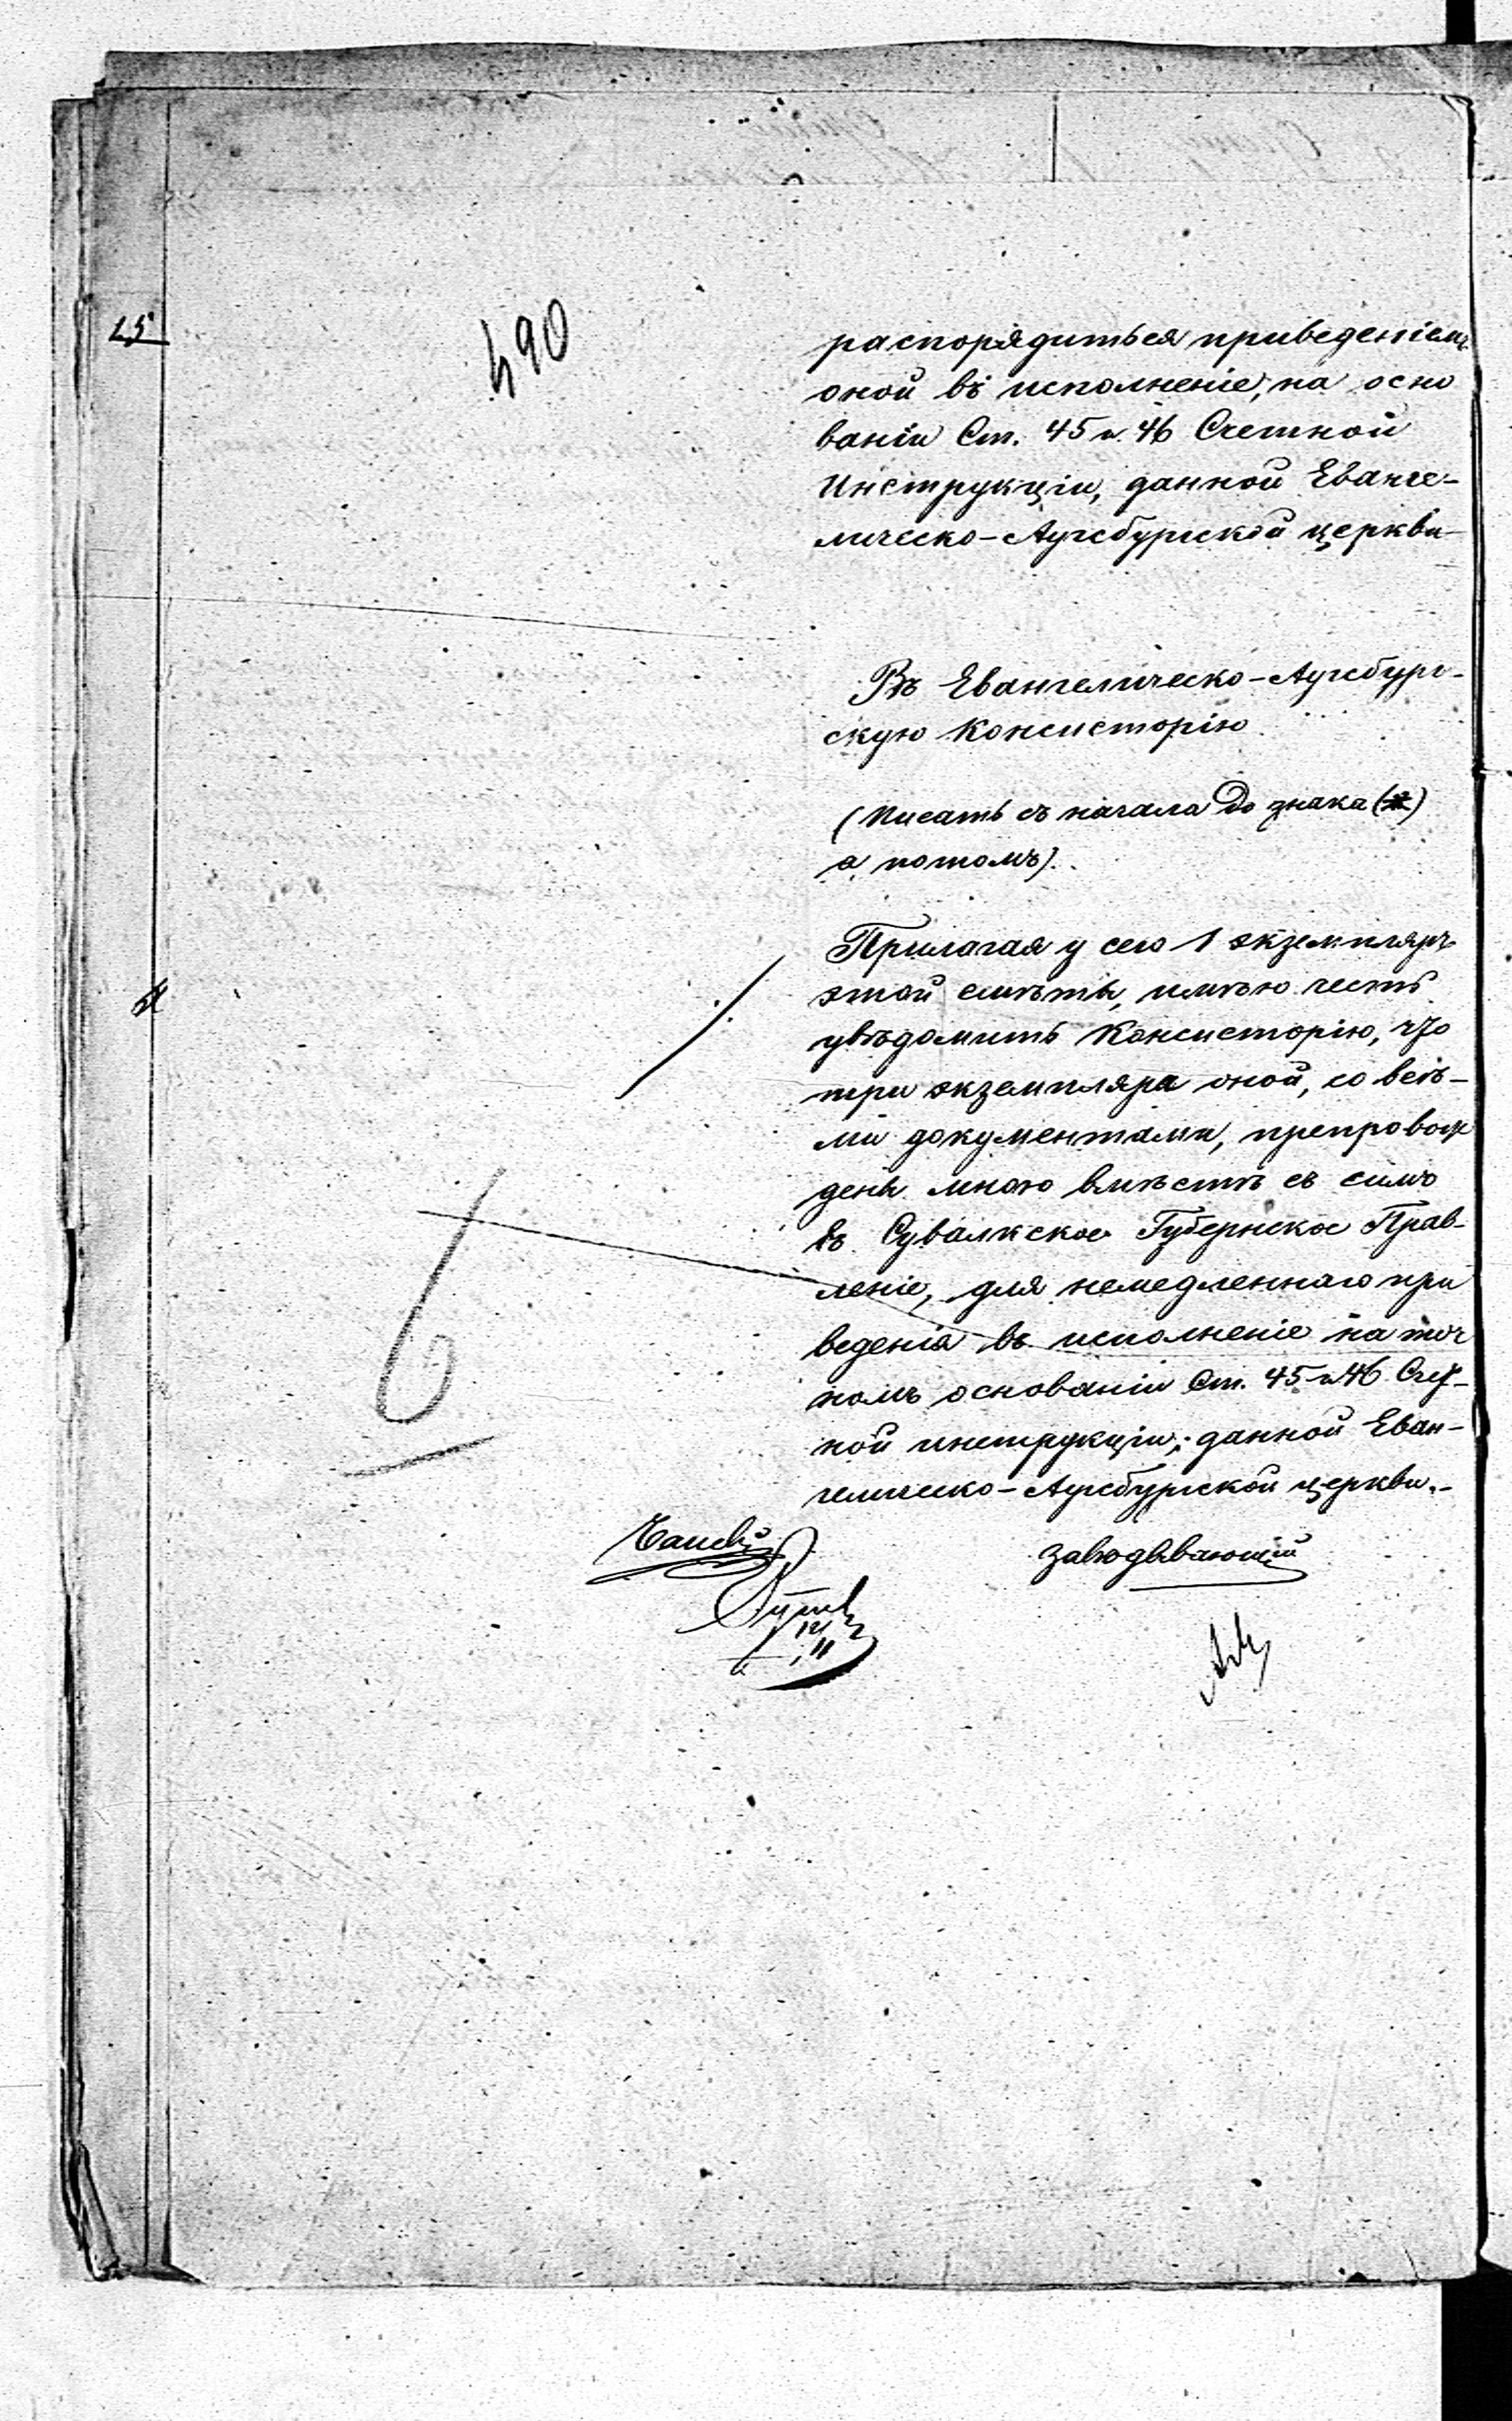 490
распорядиться приведеніемъ
оной въ исполненіе, на осно
ваніи Ст. 45 и 46 Счетной
Инструкціи, данной Еванге-
лическо-Аугсбургской церкви
Въ Евангелическо-Аугсбург-
скую Консисторію
(Писать съ начала до знака (*)
а потомъ).
Прилагая у сего 1 экземпляръ
этой смѣты, имѣю честь
увѣдомить Консисторію, что
три экземпляра оной, со всѣ-
ми документами, препровож
дены мною вмѣстѣ съ симъ
въ Сувалкское Губернское Прав-
леніе, для немедленнаго при
веденія въ исполненіе на точ
номъ основаніи Ст. 45 и 46 Счет-
ной инструкціи, данной Еван-
гелическо-Аугсбургской церкви.-
Завѣдывающій